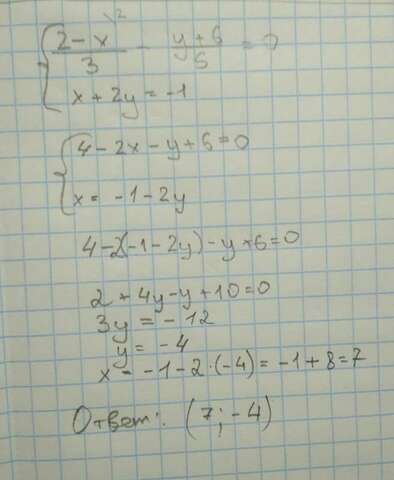 { (2-x)/3 \2 - (y+6)/6 = 0
x + 2y = -1
{ 4 - 2x - y + 6 = 0
x = -1 - 2y
4 - 2(-1 - 2y) - y + 6 = 0
2 + 4y - y + 10 = 0
3y = -12
y = -4
x = -1 - 2·(-4) = -1 + 8 = 7
Ответ: (7; -4)